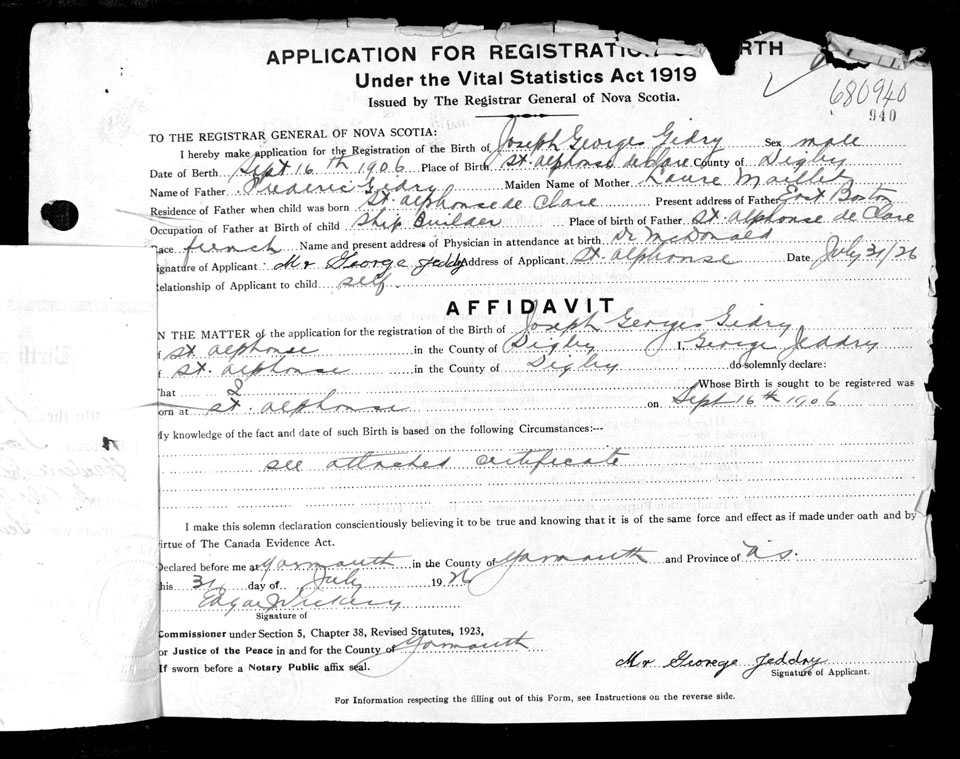 APPLICATION FOR REGISTRATION OF BIRTH
Under the Vital Statistics Act 1919
Issued by The Registrar General of Nova Scotia.
680940
940
TO THE REGISTRAR GENERAL OF NOVA SCOTIA:
I hereby make application for the Registration of the Birth of Joseph Georges Gidry Sex male
Date of Birth Sept 16th 1906 Place of Birth St. alphonse de Clare County of Digby
Name of Father Frederic Gidry Maiden Name of Mother Laure Maillet
Residence of Father when child was born St. alphonse de Clare Present address of Father East Boston
Occupation of Father at Birth of child Ship Builder Place of birth of Father St. alphonse de Clare
Race french Name and present address of Physician in attendance at birth Dr McDonald
Signature of Applicant Mr George Jeddy Address of Applicant St. alphonse Date July 31/26
Relationship of Applicant to child self.
AFFIDAVIT
IN THE MATTER of the application for the registration of the Birth of Joseph Georges Gidry
f St. alphonse in the County of Digby I, George Jeddry
f St. alphonse in the County of Digby do solemnly declare:
That Whose Birth is sought to be registered was
orn at St. alphonse on Sept 16th 1906
My knowledge of the fact and date of such Birth is based on the following Circumstances:--
see attached certificate
I make this solemn declaration conscientiously believing it to be true and knowing that it is of the same force and effect as if made under oath and by
virtue of The Canada Evidence Act.
Declared before me at Yarmouth in the County of Yarmouth and Province of N.S.
his 31 day of July 1926
Edgar J Vickery
Signature of
Commissioner under Section 5, Chapter 38, Revised Statutes, 1923,
or Justice of the Peace in and for the County of Yarmouth
If sworn before a Notary Public affix seal.
Mr George Jeddry
Signature of Applicant.
For Information respecting the filling out of this Form, see Instructions on the reverse side.